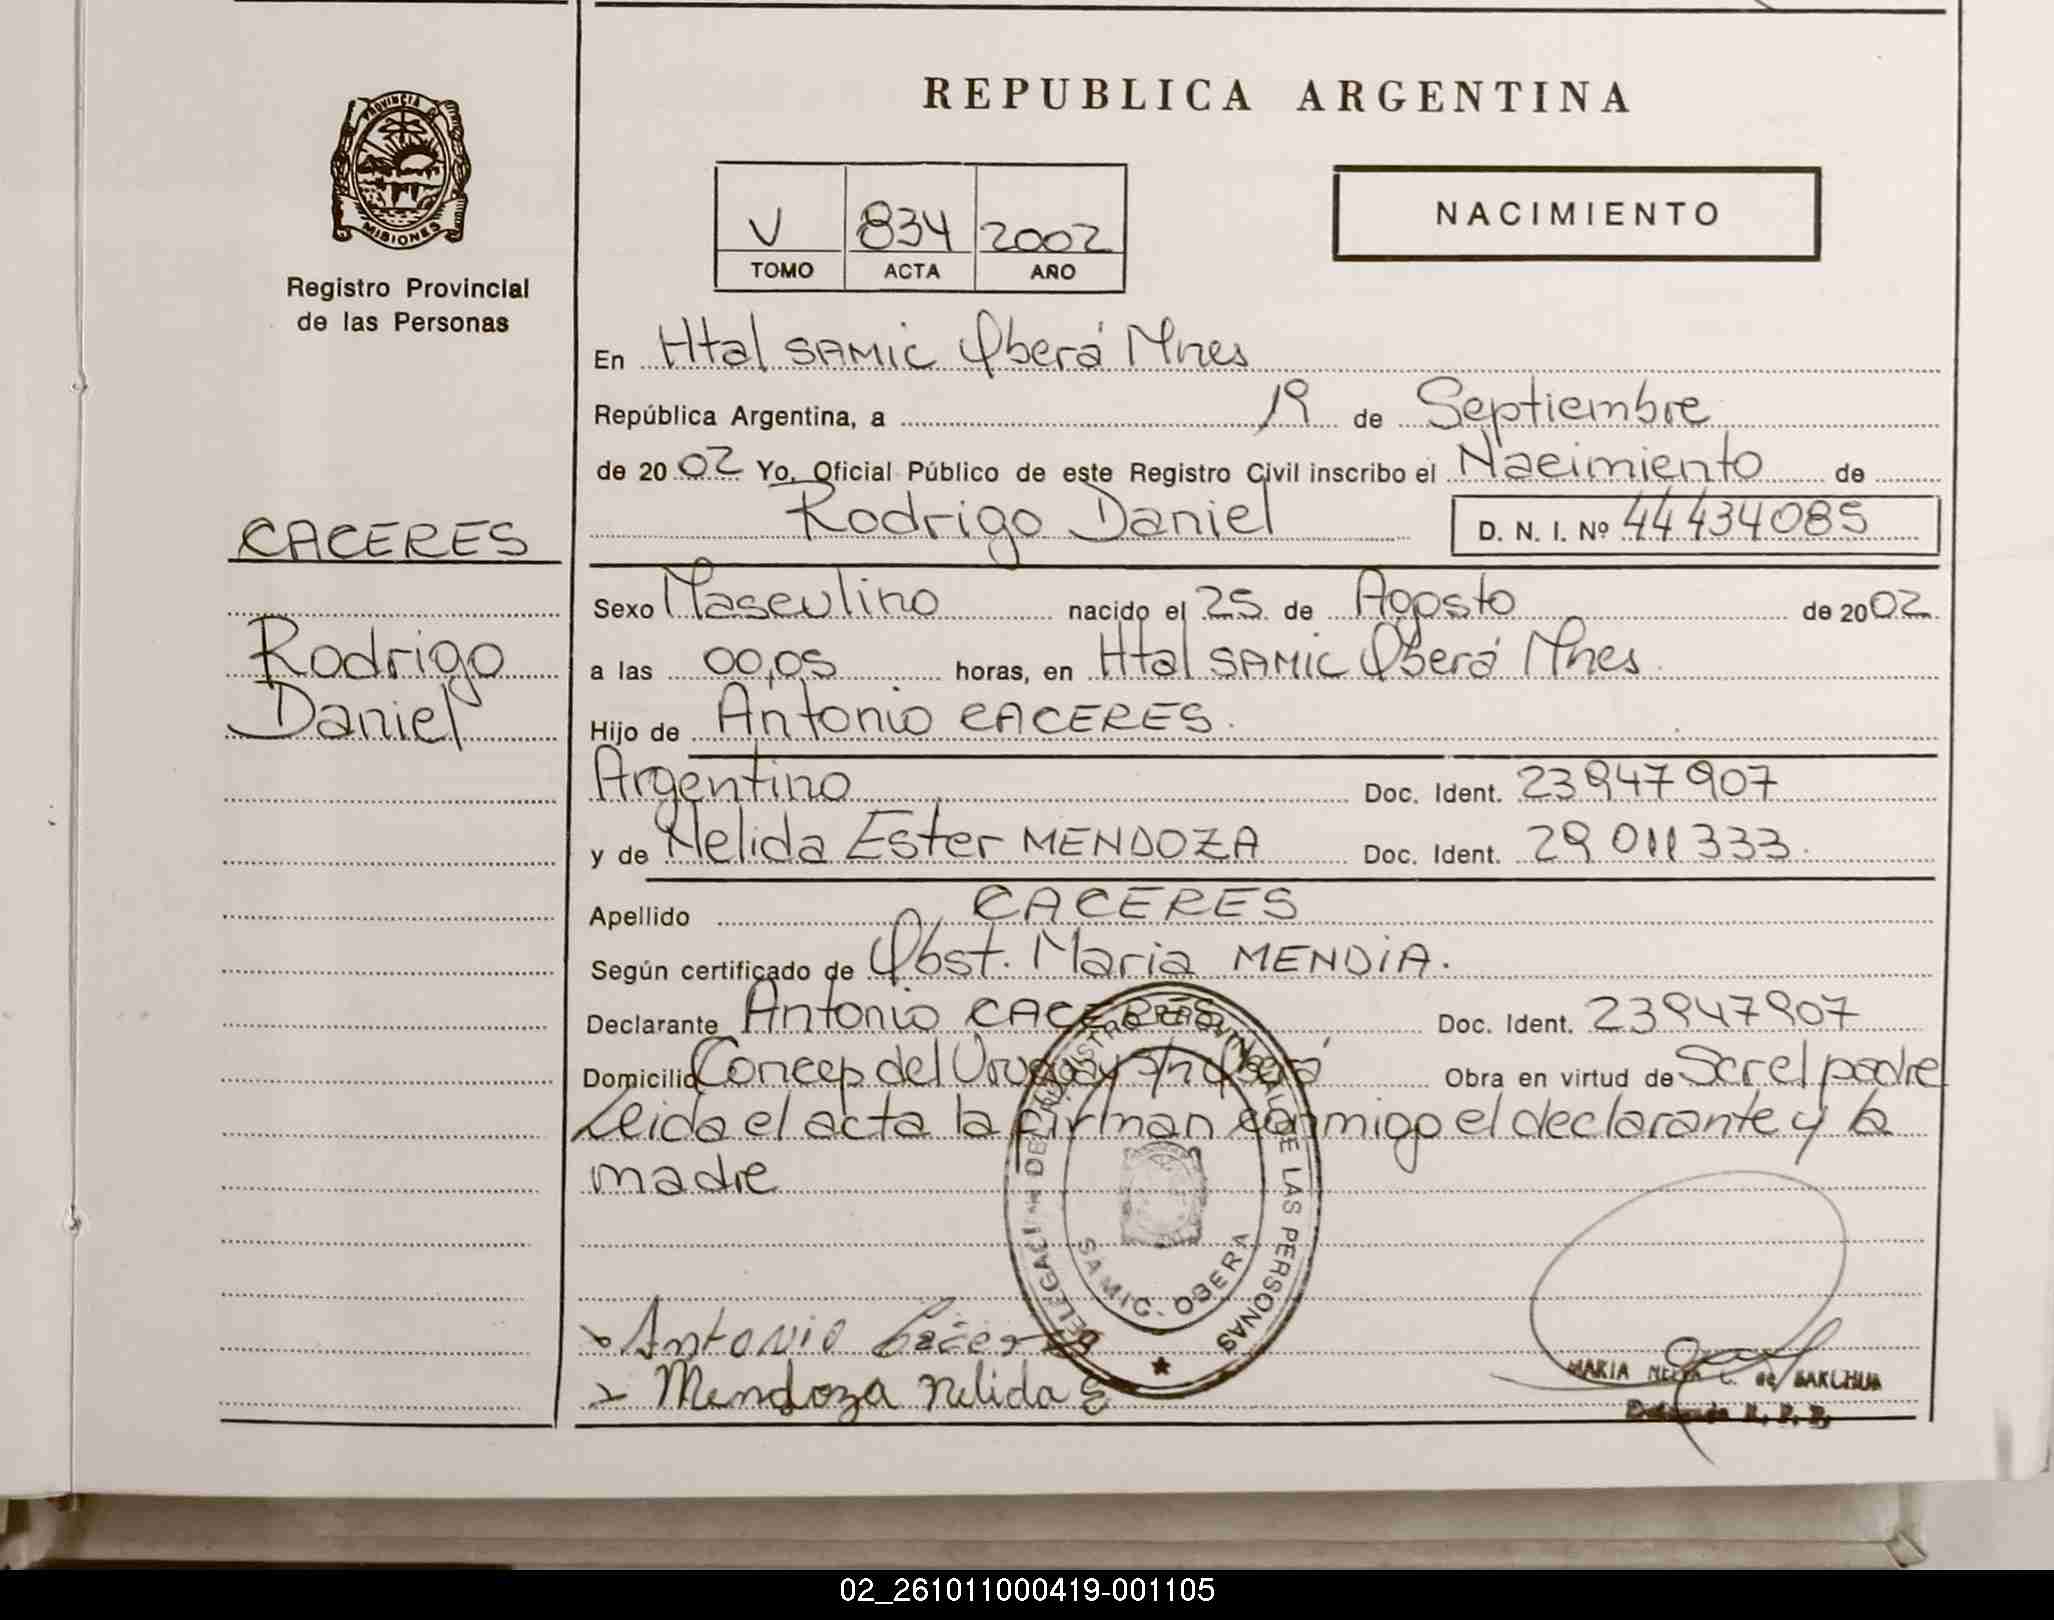 REPUBLICA ARGENTINA
PROVINCIA DE
MISIONES
Registro Provincial
de las Personas
V 834 2002
TOMO ACTA AÑO
NACIMIENTO
En Htal SAMIC Oberá Mnes
República Argentina, a 19 de Septiembre
de 2002 Yo, Oficial Público de este Registro Civil inscribo el Nacimiento de
Rodrigo Daniel D. N. I. Nº 44434085
CACERES
Rodrigo
Daniel
Sexo Masculino nacido el 25 de Agosto de 2002
a las 00,05 horas, en Htal SAMIC Oberá Mnes.
Hijo de Antonio CACERES.
Argentino Doc. Ident. 23947907
y de Nelida Ester MENDOZA Doc. Ident. 29011333.
Apellido CACERES
Según certificado de Obst. Maria MENDIA.
Declarante Antonio CACERES Doc. Ident. 23947907
Domicilio Concep del Uruguay s/n Oberá Obra en virtud de Ser el padre
Leida el acta la firman conmigo el declarante y la
madre
DELEGACION DEL REGISTRO PROVINCIAL DE LAS PERSONAS
SAMIC. OBERA
Antonio Caceres
Mendoza Nelida E
MARIA C. de
R. P. P.
02_261011000419-001105